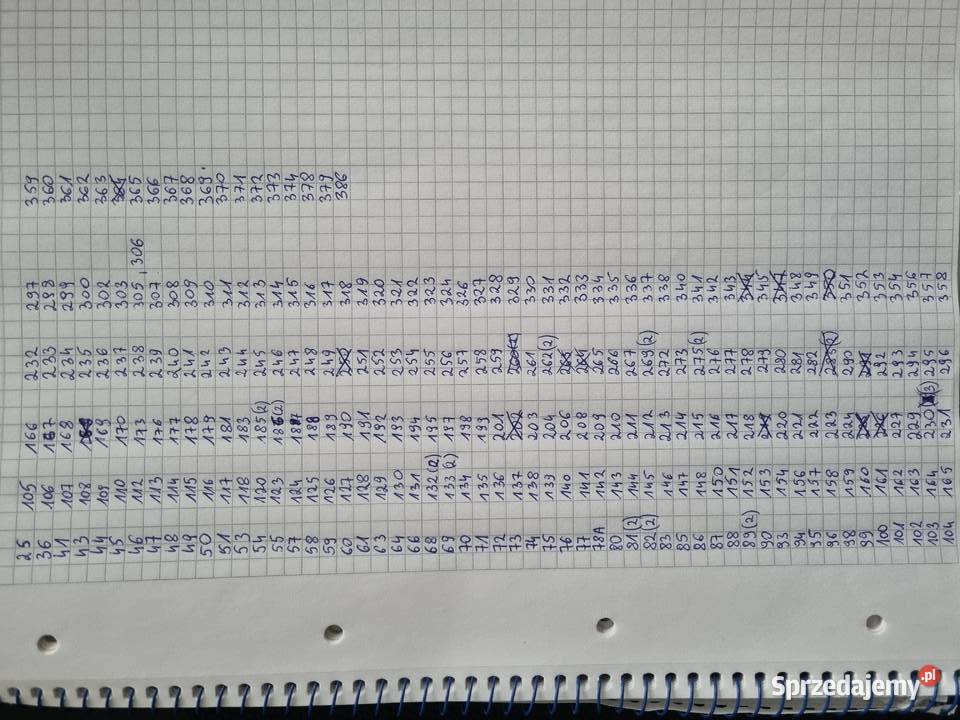 25 105 166 232 297 359
36 106 167 233 298 360
41 107 168 234 299 361
43 108 235 300 362
44 109 169 236 302 363
45 110 170 237 303 364
46 112 173 238 305, 306 365
47 113 176 239 307 366
48 114 177 240 308 367
49 115 178 241 309 368
50 116 179 242 310 369.
51 117 181 243 311 370
53 118 183 244 312 371
54 120 185(2) 245 313 372
55 123 186(2) 246 314 373
57 124 187 247 315 374
58 125 188 248 316 378
59 126 189 249 317 379
60 127 190 250 318 386
61 128 191 251 319
63 129 192 252 320
64 130 193 253 321
66 131 194 254 322
68 132(2) 195 255 323
69 133(2) 197 256 324
70 134 198 257 326
71 135 199 258 327
72 136 201 259 328
73 137 202 260(2) 329
74 138 203 261 330
75 139 204 262(2) 331
76 140 206 263 332
77 141 208 264 333
78A 142 209 265 334
80 143 210 266 335
81(2) 144 211 267 336
82(2) 145 212 269(2) 337
83 146 213 272 338
85 147 214 273 340
86 148 215 275(2) 341
87 150 216 276 342
88 151 217 277 343
89(2) 152 218 278 344
90 153 219 279 345
93 154 220 280 347
94 156 221 281 348
95 157 222 282 349
96 158 223 283(2) 350
98 159 224 290 351
99 160 225 291 352
100 161 226 292 353
101 162 227 293 354
102 163 229 294 356
103 164 230 (3) 295 357
104 165 231 296 358
Sprzedajemy.pl